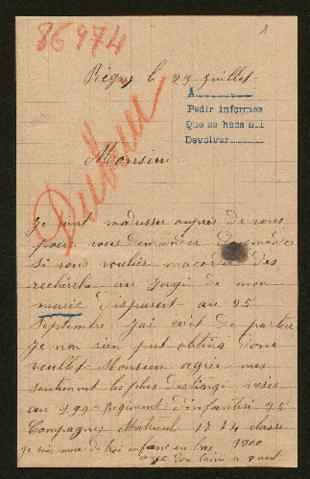 86974
1
Régny le 23 Juillet
A
Pedir informes
Que se haga
Devolver
Monsieur
Dubreu
Je vient madresser auprès de vous
pour vous demander
si vous vouliez macorder des
recherche au sugé de mon
marie disparuit au 25
Septembre. Jai écrit de partou
je nai rien put obtenir donc
veullet Monsieur agrée mes
sentiment les plus
au 299 Regiment d'infantri 25
Compagnes Matricul 1774 classe
1900
je suis mere de troi enfant en bas